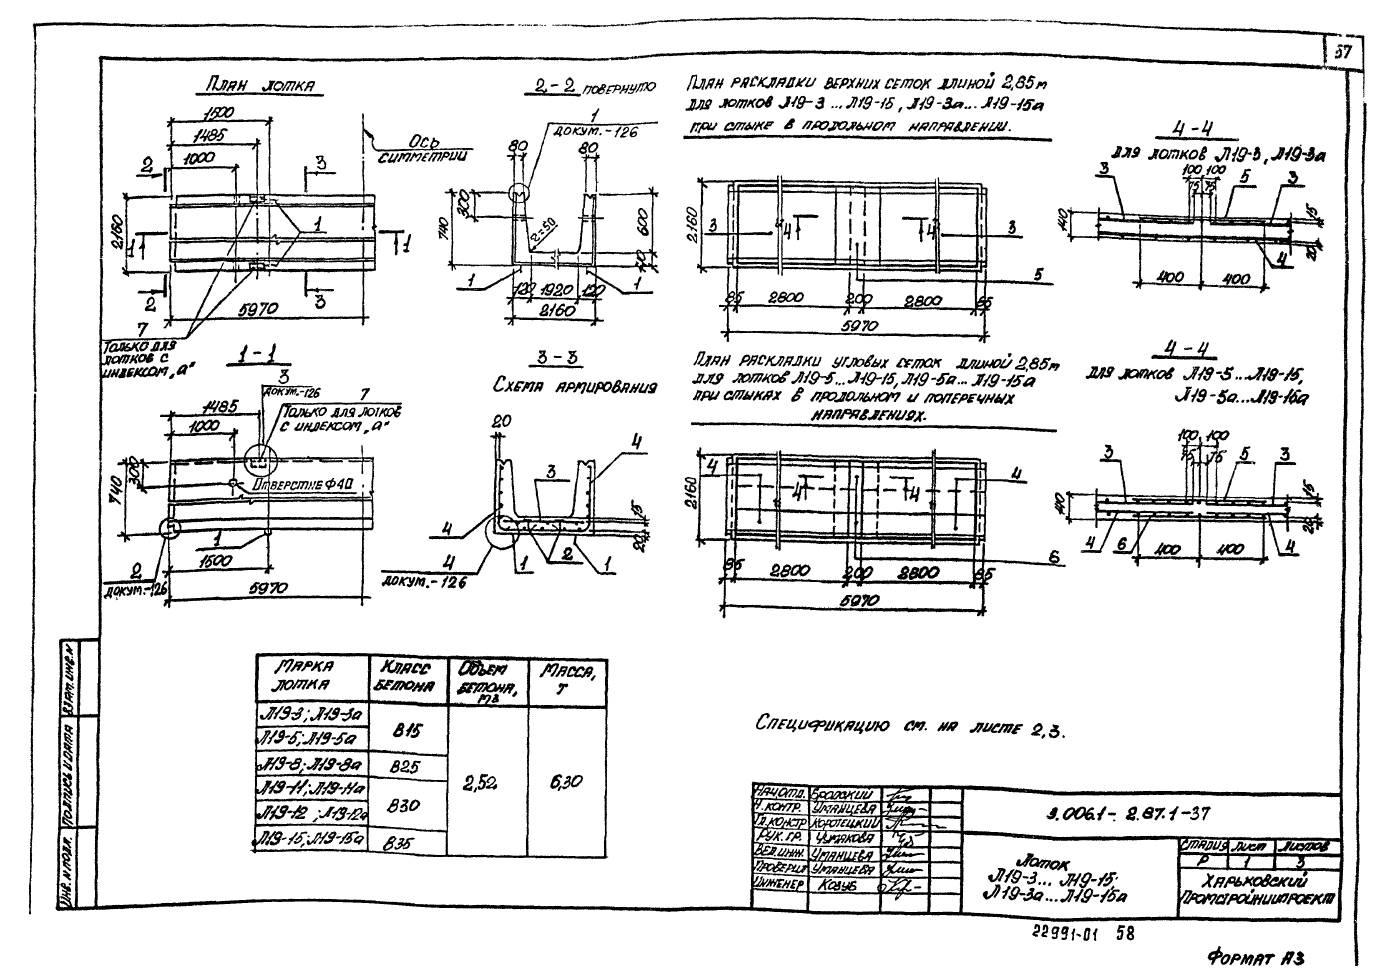 57
План лотка
1500
1485
1000
Ось
симметрии
2
3
2160
1
1
1
2
3
5970
7
Только для
лотков с
индексом „а"
2-2 повернуто
1
докум.-126
80
80
740
300
600
R=50
1
120
1920
120
1
2160
План раскладки верхних сеток длиной 2,85м
для лотков Л19-3...Л19-15, Л19-3а...Л19-15а
при стыке в продольном направлении.
2160
3
4
4
3
5
85
2800
200
2800
85
5970
4-4
для лотков Л19-3, Л19-3а
3
100
100
5
3
75
75
15
140
20
4
400
400
1-1
3
докум.-126
7
Только для лотков
с индексом „а"
1485
1000
740
300
Отверстие Ф40
1
1500
2
докум.-126
5970
3-3
Схема армирования
20
4
3
15
4
20
4
докум.-126
1
2
1
План раскладки угловых сеток длиной 2,85м
для лотков Л19-5...Л19-15, Л19-5а...Л19-15а
при стыках в продольном и поперечных
направлениях.
2160
4
4
4
4
6
85
2800
200
2800
85
5970
4-4
для лотков Л19-5...Л19-15,
Л19-5а...Л19-15а
100
100
3
75
75
5
3
15
140
20
4
6
400
400
4
Марка лотка
Класс бетона
Объем бетона, м3
Масса, т
Л19-3; Л19-3а
В15
Л19-5; Л19-5а
Л19-8; Л19-8а
В25
2,52
6,30
Л19-11; Л19-11а
В30
Л19-12; Л19-12а
Л19-15; Л19-15а
В35
Спецификацию см. на листе 2,3.
Нач.отд. Бродский
Н.контр. Уманцева
Гл.констр Коротецкий
Рук.гр. Чумакова
Вед.инж. Уманцева
Проверил Уманцева
Инженер Козуб
3.006.1-2.87.1-37
Лоток
Л19-3...Л19-15
Л19-3а...Л19-15а
Стадия Лист Листов
Р 1 3
Харьковский
Промстройниипроект
Взам.инв.N
Подпись и дата
Инв.N подл.
22991-01 58
Формат А3